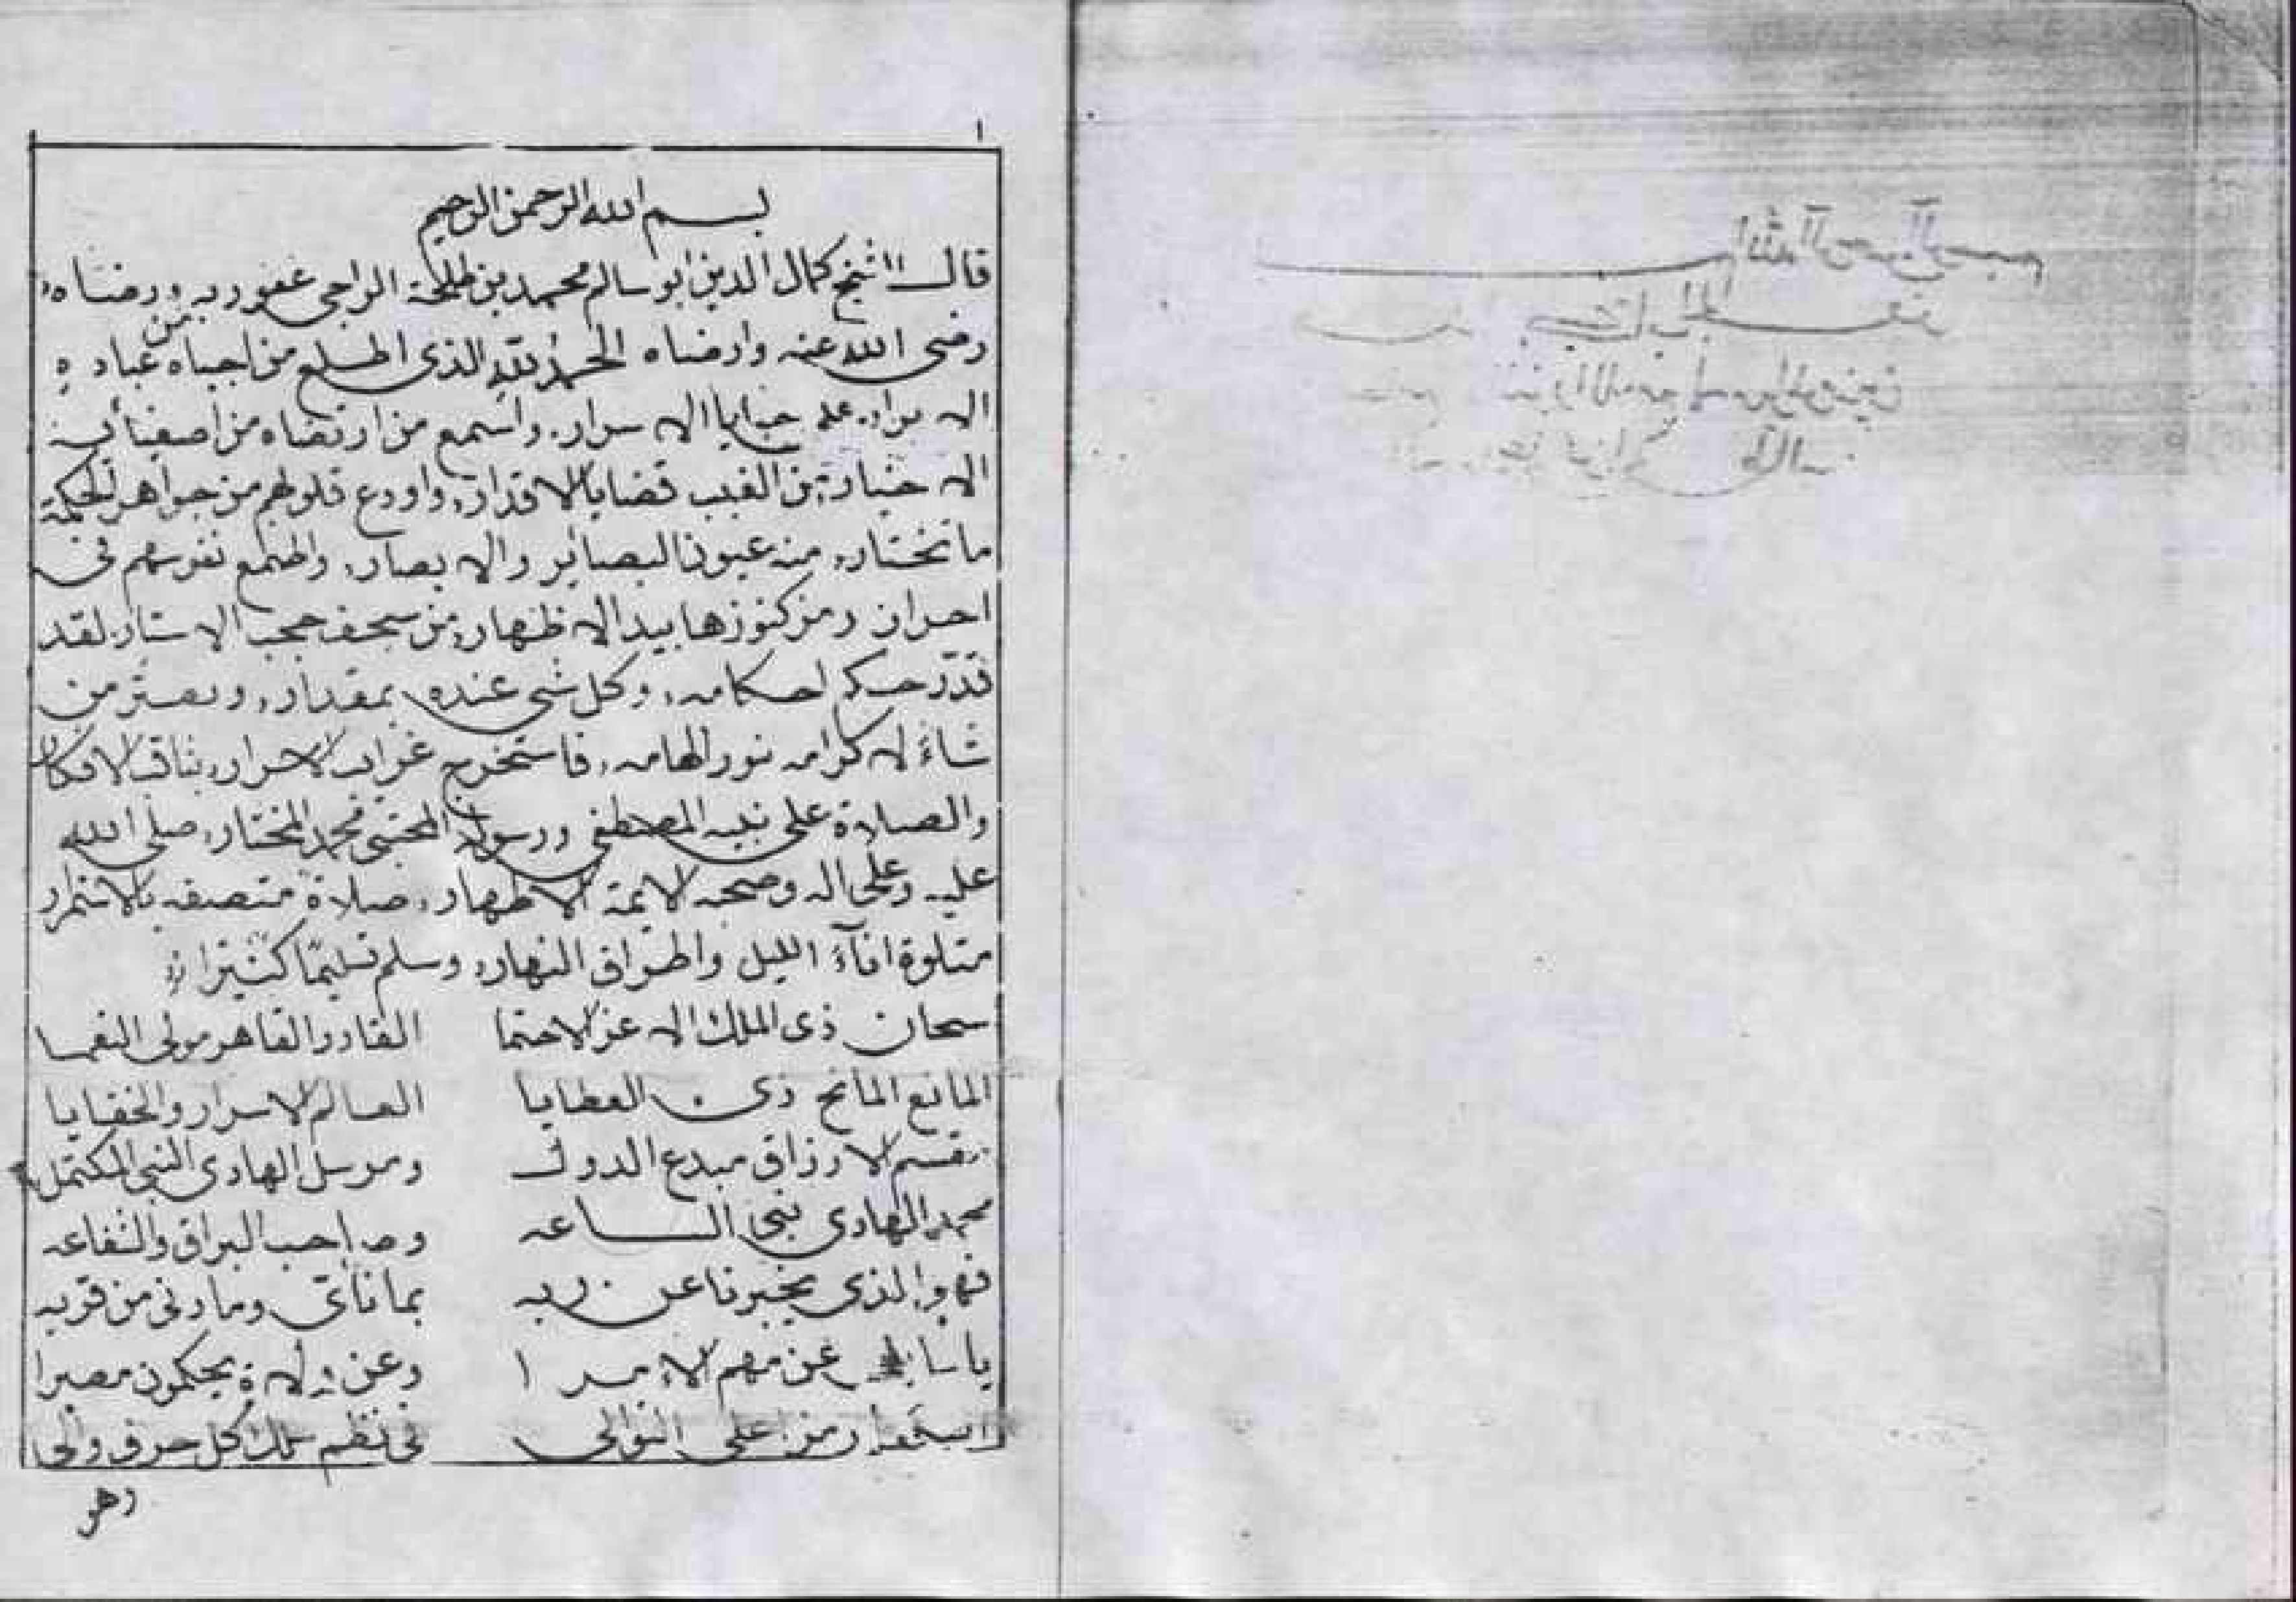 ١
بسم الله الرحمن الرحيم
قال الشيخ كمال الدين ابو سالم محمد بن طلحة الراجي عفو ربه ورضاه
رضى الله عنه وارضاه الحمد لله الذى اطلع من اجتباه من عباده
الابرار على خبايا الاسرار واسمع من ارتضاه من اصفيائه
الاخيار من الغيب قضايا الاقدار واودع قلوبهم من جواهر الحكمة
ما تختاره منه عيون البصاير والابصار واطمع نفوسهم فى
احراز رمز كنوزها بيد الاظهار من سجف حجب الاستار لقد
قدّر احكامه وكل شى عنده بمقدار من
شاء لاكرامه نور الهامه فاستخرج غرايب الاسرار بثاقب الافكار
والصلاة على نبيه المصطفى ورسوله المجتبى محمد المختار صلى الله
عليه وعلى اله وصحبه الائمة الاطهار صلاة متصفه بالاستمرار
متلوة اناء الليل واطراف النهار وسلم تسليمًا كثيرا
سبحان ذى الملك الاه عز الاحتما القادر القاهر مولى النعما
المانع المانح ذى العطايا العالم الاسرار والخفايا
مقسم الارزاق مبدع الدول ومرسل الهادى النبى المكتمل
محمد الهادى نبى الساعه وصاحب البراق والشفاعه
فهو الذى يخبرنا عن ربه بما نأى وما دنى من قربه
يا عن مهم الامرا وعن ولاة يحكمون مصرا
رمزا على التوالى فى نظم كل حرف والى
وهو